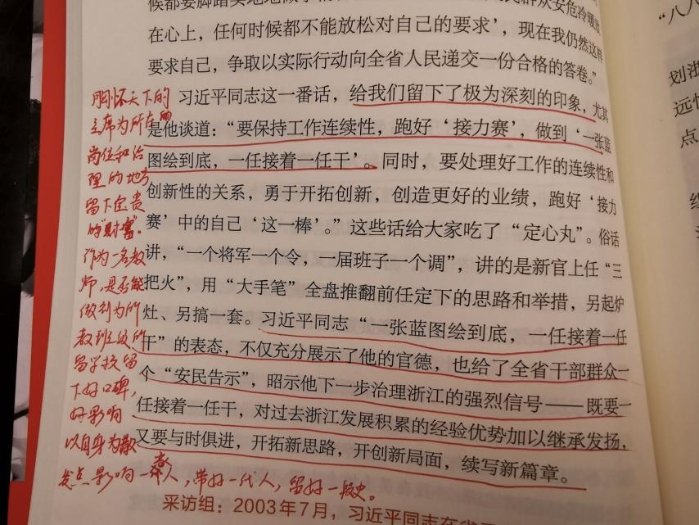 候都要脚踏实地地做
民群众安危冷暖
在心上，任何时候都不能放松对自己的要求’，现在我仍然这样
要求自己，争取以实际行动向全省人民递交一份合格的答卷。”
习近平同志这一番话，给我们留下了极为深刻的印象，尤其
是他谈道：“要保持工作连续性，跑好‘接力赛’，做到‘一张蓝
图绘到底，一任接着一任干’。同时，要处理好工作的连续性和
创新性的关系，勇于开拓创新，创造更好的业绩，跑好‘接力
赛’中的自己‘这一棒’。”这些话给大家吃了“定心丸”。俗话
讲，“一个将军一个令，一届班子一个调”，讲的是新官上任“三
把火”，用“大手笔”全盘推翻前任定下的思路和举措，另起炉
灶、另搞一套。习近平同志“一张蓝图绘到底，一任接着一任
干”的表态，不仅充分展示了他的官德，也给了全省干部群众一
个“安民告示”，昭示他下一步治理浙江的强烈信号——既要一
任接着一任干，对过去浙江发展积累的经验优势加以继承发扬，
又要与时俱进，开拓新思路，开创新局面，续写新篇章。
采访组：2003年7月，习近平同志在省
胸怀天下的
主席为所在的
岗位和治
理的地方
留下宝贵
的“财富”。
作为一名教
师，是否能
做到为所
教班级所
留学校留
下好口碑，
好影响
以自身为散
发点，影响一群人，带好一代人，留好一段史。
“八八
划浙
远
点